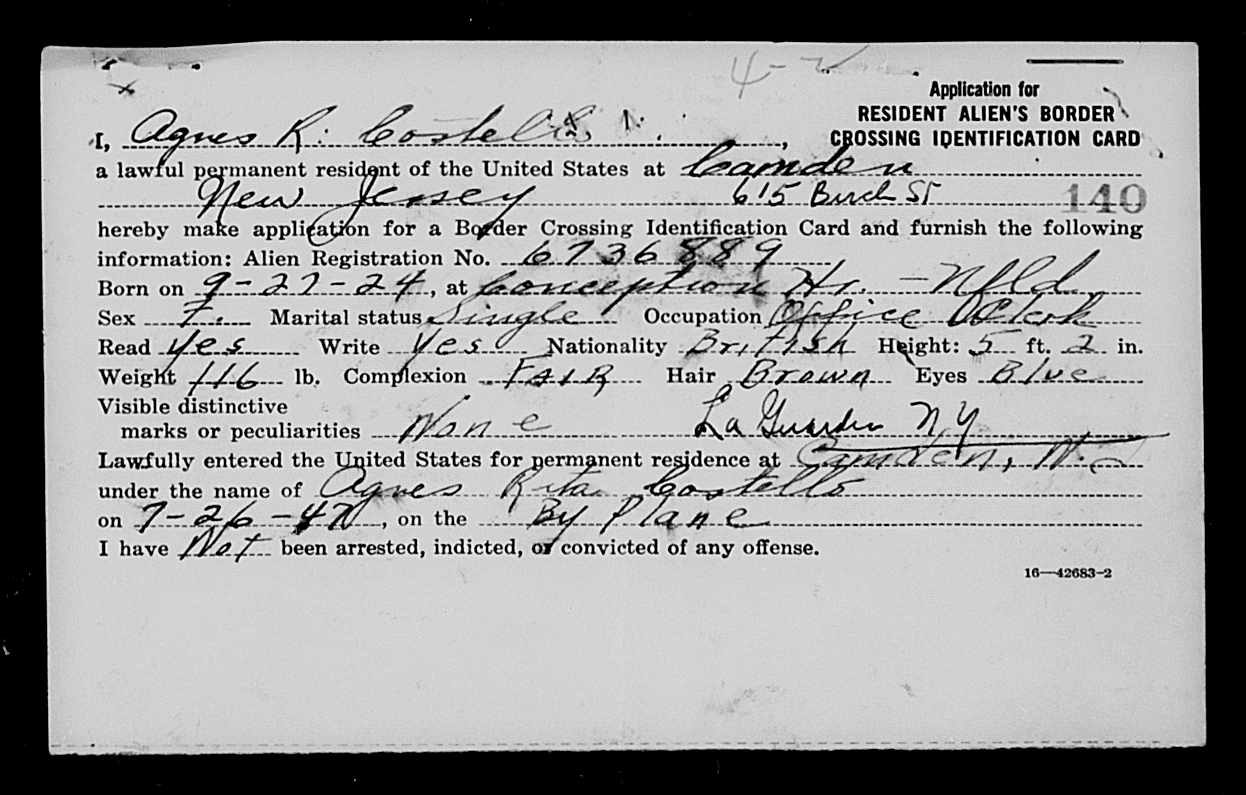 Application for
RESIDENT ALIEN'S BORDER
CROSSING IDENTIFICATION CARD
I, Agnes R. Costello,
a lawful permanent resident of the United States at Camden
New Jersey 615 Birch St 140
hereby make application for a Border Crossing Identification Card and furnish the following
information: Alien Registration No. 6736889
Born on 9-27-24, at Conception Hr. - Nfld
Sex F. Marital status Single Occupation Office Clerk
Read yes Write yes Nationality British Height: 5 ft. 2 in.
Weight 116 lb. Complexion FAIR Hair Brown Eyes Blue
Visible distinctive
marks or peculiarities None La Guardia NY
Lawfully entered the United States for permanent residence at Camden, N.J
under the name of Agnes Rita Costello
on 7-26-47, on the By Plane
I have Not been arrested, indicted, or convicted of any offense.
16—42683-2